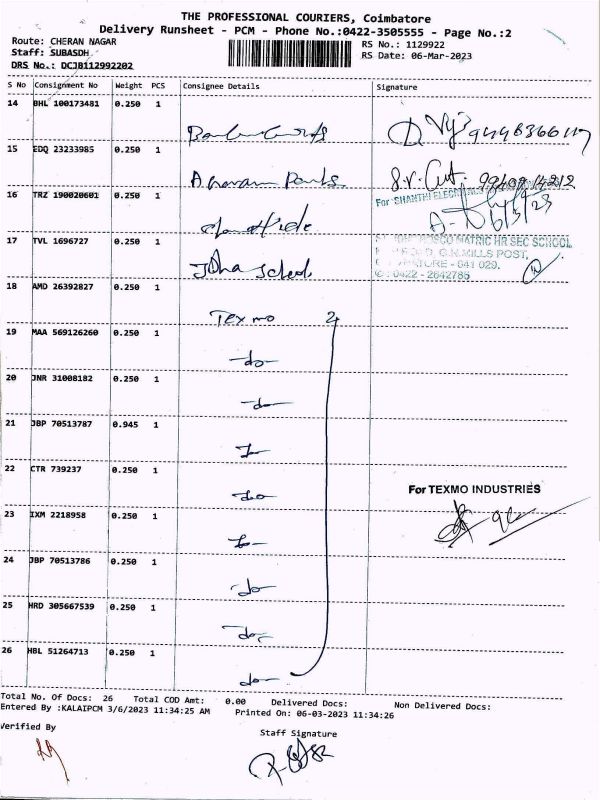 THE PROFESSIONAL COURIERS, Coimbatore
Delivery Runsheet - PCM - Phone No.:0422-3505555 - Page No.:2
Route: CHERAN NAGAR
RS No.: 1129922
Staff: SUBASDH
RS Date: 06-Mar-2023
DRS No.: DCJB112992202
S No Consignment No Weight PCS Consignee Details Signature
14 BHL 100173481 0.250 1
15 EDQ 23233985 0.250 1
16 TRZ 190020601 0.250 1
For SHANTHI
17 TVL 1696727 0.250 1
MATRIC HR SEC SCHOOL
G.N.MILLS POST,
641 029.
0422 - 2642785
School
18 AMD 26392827 0.250 1
Texmo
19 MAA 569126260 0.250 1
-do-
20 JNR 31008182 0.250 1
-do-
21 JBP 70513787 0.945 1
22 CTR 739237 0.250 1
-do-
For TEXMO INDUSTRIES
23 IXM 2218958 0.250 1
24 JBP 70513786 0.250 1
-do-
25 HRD 305667539 0.250 1
-do-
26 HBL 51264713 0.250 1
-do-
Total No. Of Docs: 26 Total COD Amt: 0.00 Delivered Docs: Non Delivered Docs:
Entered By :KALAIPCM 3/6/2023 11:34:25 AM Printed On: 06-03-2023 11:34:26
Verified By
Staff Signature